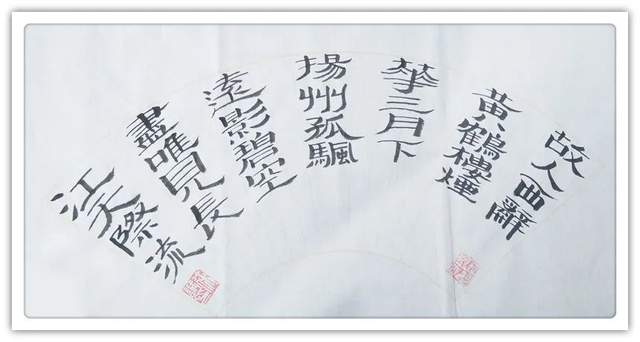 故人西辭
黃鶴樓煙
華三月下
揚州孤颿
遠影碧空
盡唯見長
江天際流